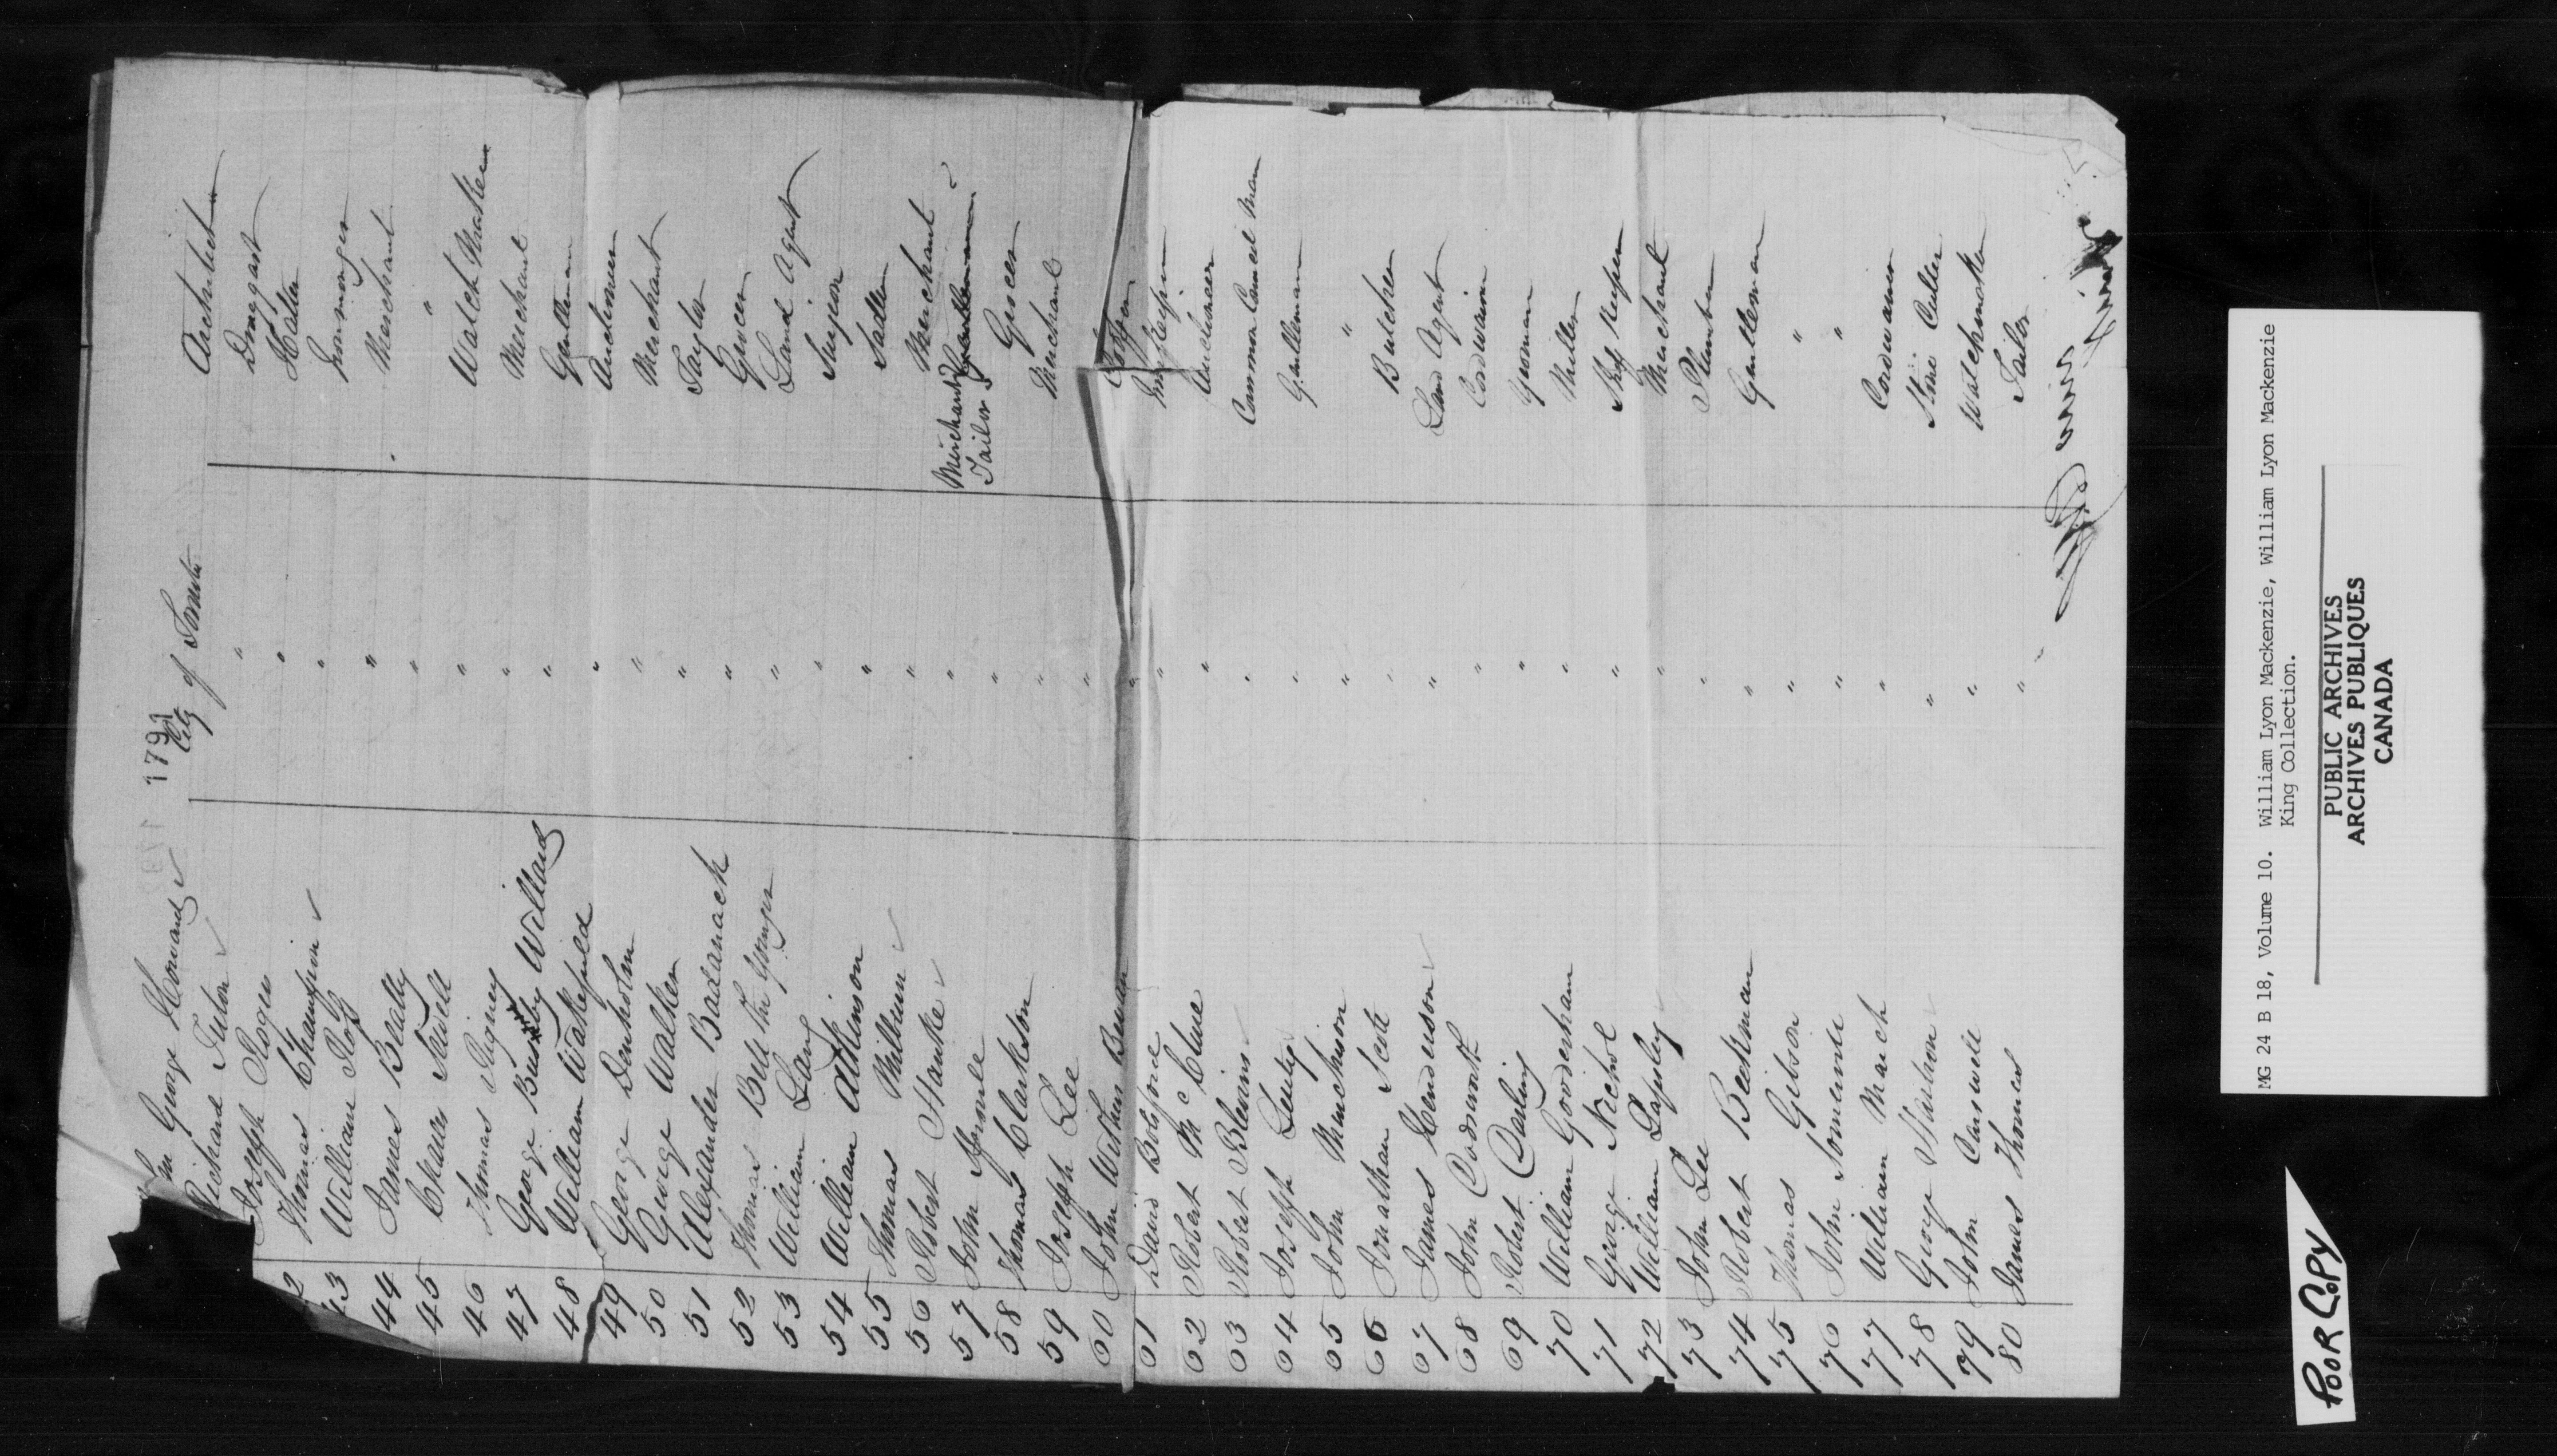 1791
John George Howard ✓ City of Toronto Architect
Richard Tuton ✓ " Druggist
Joseph Rogers " Hatter
42 Thomas Champion ✓ " Ironmonger
43 William Roy " Merchant
44 James Beatty " "
45 Charles Sewell " Watch Maker
46 Thomas Rigney " Merchant
47 George Busby Willard " Gentleman
48 William Wakefield " Auctioneer
49 George Denholm " Merchant
50 George Walker " Taylor
51 Alexander Badanach " Grocer
52 Thomas Bell the Younger " Land Agent
53 William Lang " Surgeon
54 William Atkinson " Saddler
55 Thomas Milburn ✓ " Merchant
56 Robert Hawke ✓ " Merchant Tailor
57 John " Grocer
58 Thomas Clarkson " Merchant
59 Joseph Lee "
60 John Withers Beman "
61 David Botsford " Innkeeper
62 Robert McClure " Auctioneer
63 Robert Blevins " Common Council Man
64 Joseph Lenty " Gentleman
65 John Murchison " "
66 Jonathan Scott " Butcher
67 James Henderson ✓ " Land Agent
68 John Codsworth " Cordwainer
69 Robert Darling " Yeoman
70 William Gooderham " Miller
71 George Nichol " Shop Keeper
72 William Lapsley " Merchant
73 John Lee " Plumber
74 Robert Beekman " Gentleman
75 Thomas Gibson " "
76 John Somerville " "
77 William March "
78 George Harlan " Cordwainer
79 John Carswell " Watchmaker
80 James Thomas " Tailor
MG 24 B 18, Volume 10. William Lyon Mackenzie, William Lyon Mackenzie
King Collection.
PUBLIC ARCHIVES
ARCHIVES PUBLIQUES
CANADA
POOR COPY